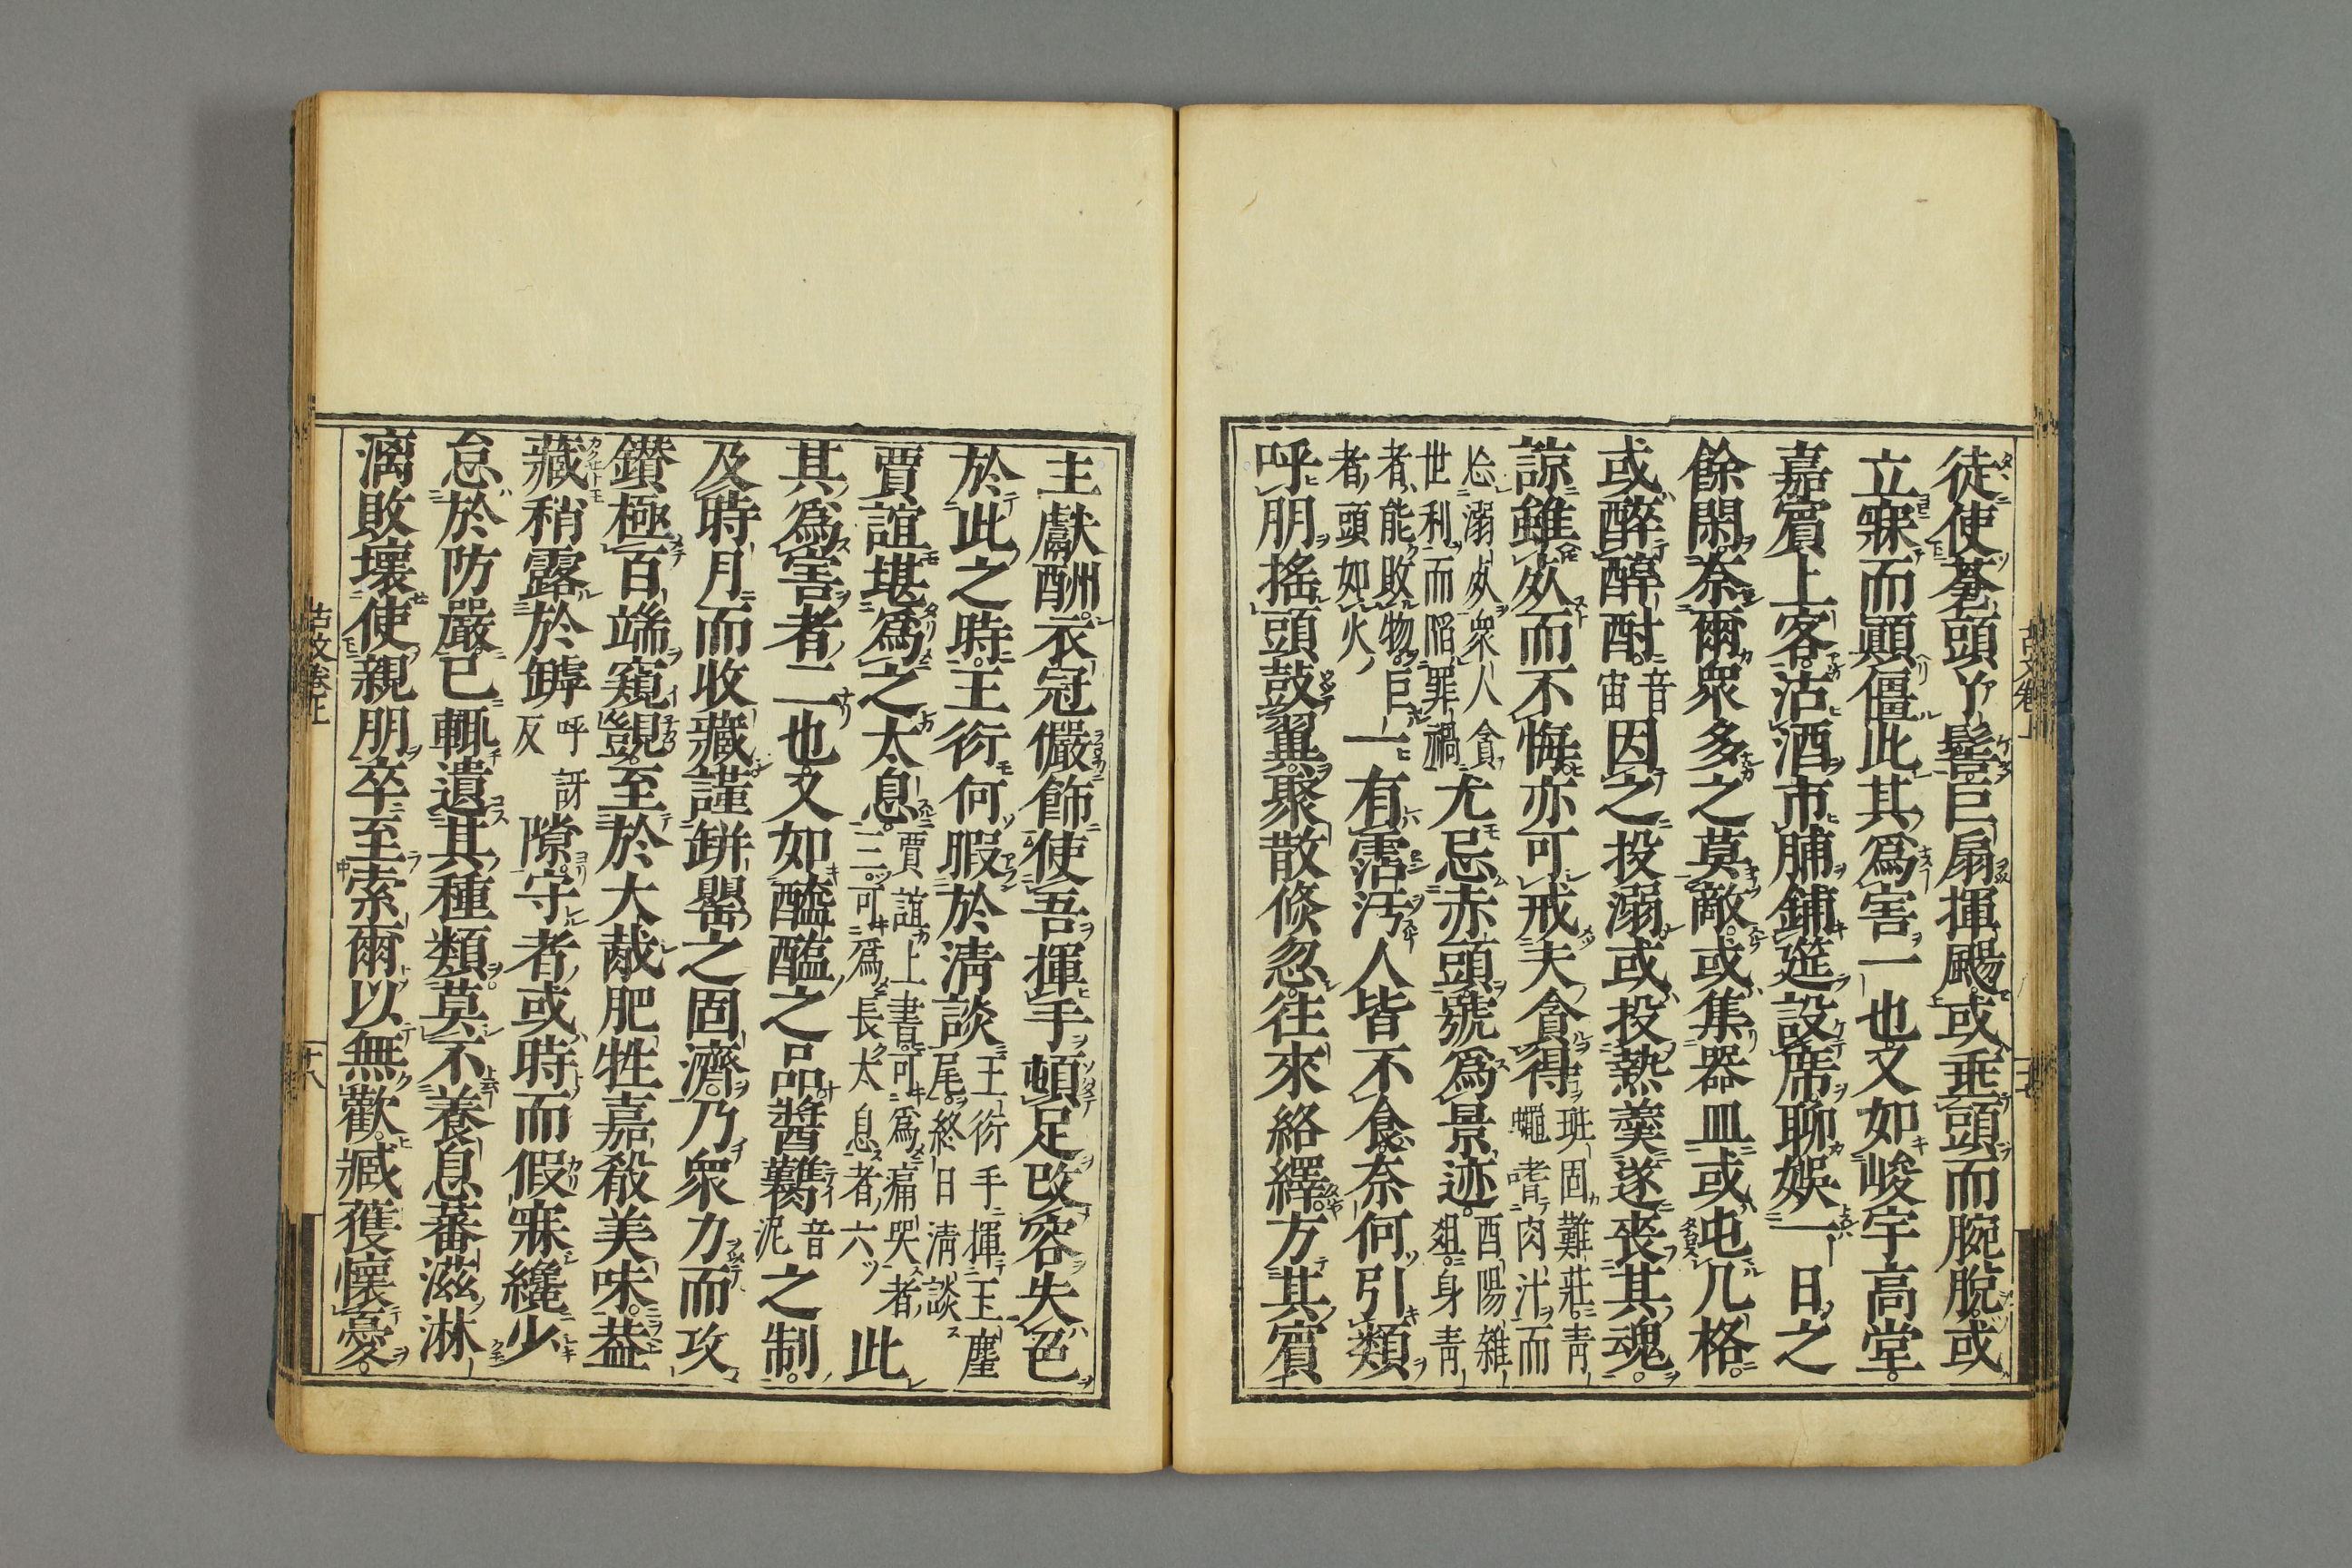 徒使蒼頭丫髻巨扇揮颺或垂頭而腕脫或
立寐而顚僵此其爲害一也又如峻宇高堂
嘉賓上客沽酒市脯鋪筵設席聊娛一日之
餘閑奈爾衆多之莫敵或集器皿或屯几格
或醉醇酎音宙因之投溺或投熱羹遂喪其魂
諒雖死而不悔亦可戒夫貪得班固難莊青蠅嗜肉汁而
忘溺死衆人貪世利而陷罪禍尤忌赤頭號爲景迹酉陽雜俎身青
者能敗物巨者頭如火一有霑汚人皆不食奈何引類
呼朋搖頭鼓翼聚散倏忽往來絡繹方其賓
主獻酬衣冠儼飾使吾揮手頓足改容失色
於此之時王衍何暇於淸談王衍手揮玉麈尾終日淸談
賈誼堪爲之太息賈誼上書可爲痛哭者三可爲長太息者六此
其爲害者二也又如醯醢之品醬臡音泥之制
及時月而收藏謹缾罌之固濟乃衆力而攻
鑽極百端窺覬至於大胾肥牲嘉殽美味葢
藏稍露於罅呼訝反隙守者或時而假寐纔少
怠於防嚴已輒遺其種類莫不養息蕃滋淋
漓敗壞使親朋卒至索爾以無歡臧獲懷憂
古文卷上
十八